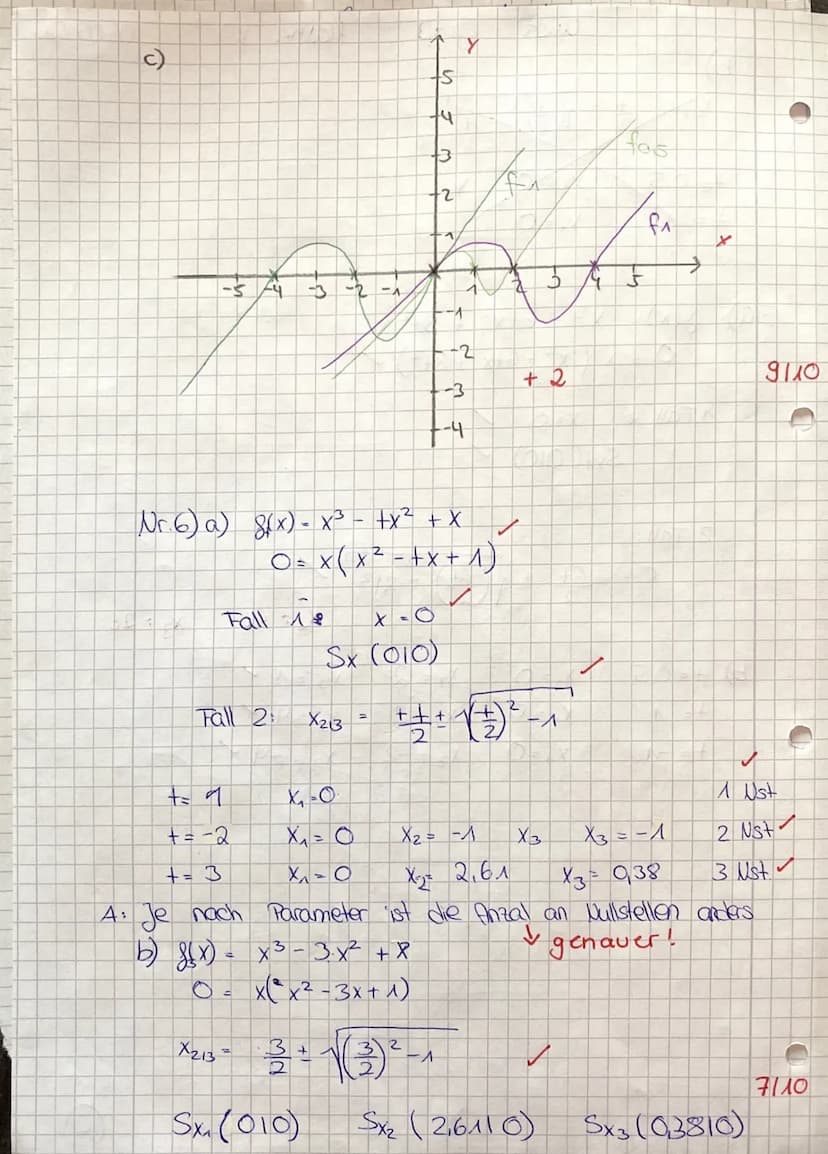 c)
Y
5
4
3
2
1
f-1
f0,5
f1
x
-5 -4 -3 -2 -1 1 2 3 4 5
-1
-2
-3
-4
+ 2
9/10
Nr.6) a) ft(x) = x³ - tx² + x ✓
0 = x(x² - tx + 1)
Fall 1: x = 0 ✓
Sx (0|0)
Fall 2: x2/3 = +t/2 ± √((t/2)² - 1) ✓
t = 1 x1 = 0 1 Nst ✓
t = -2 x1 = 0 x2 = -1 x3 x3 = -1 2 Nst ✓
t = 3 x1 = 0 x2 = 2,61 x3 = 0,38 3 Nst ✓
A: Je nach Parameter ist die Anzal an Nullstellen anders
↓ genauer!
b) f3(x) = x³ - 3·x² + x
0 = x(x² - 3x + 1)
x2/3 = 3/2 ± √((3/2)² - 1) ✓
7/10
Sx1 (0|0) Sx2 (2,61|0) Sx3 (0,38|0)